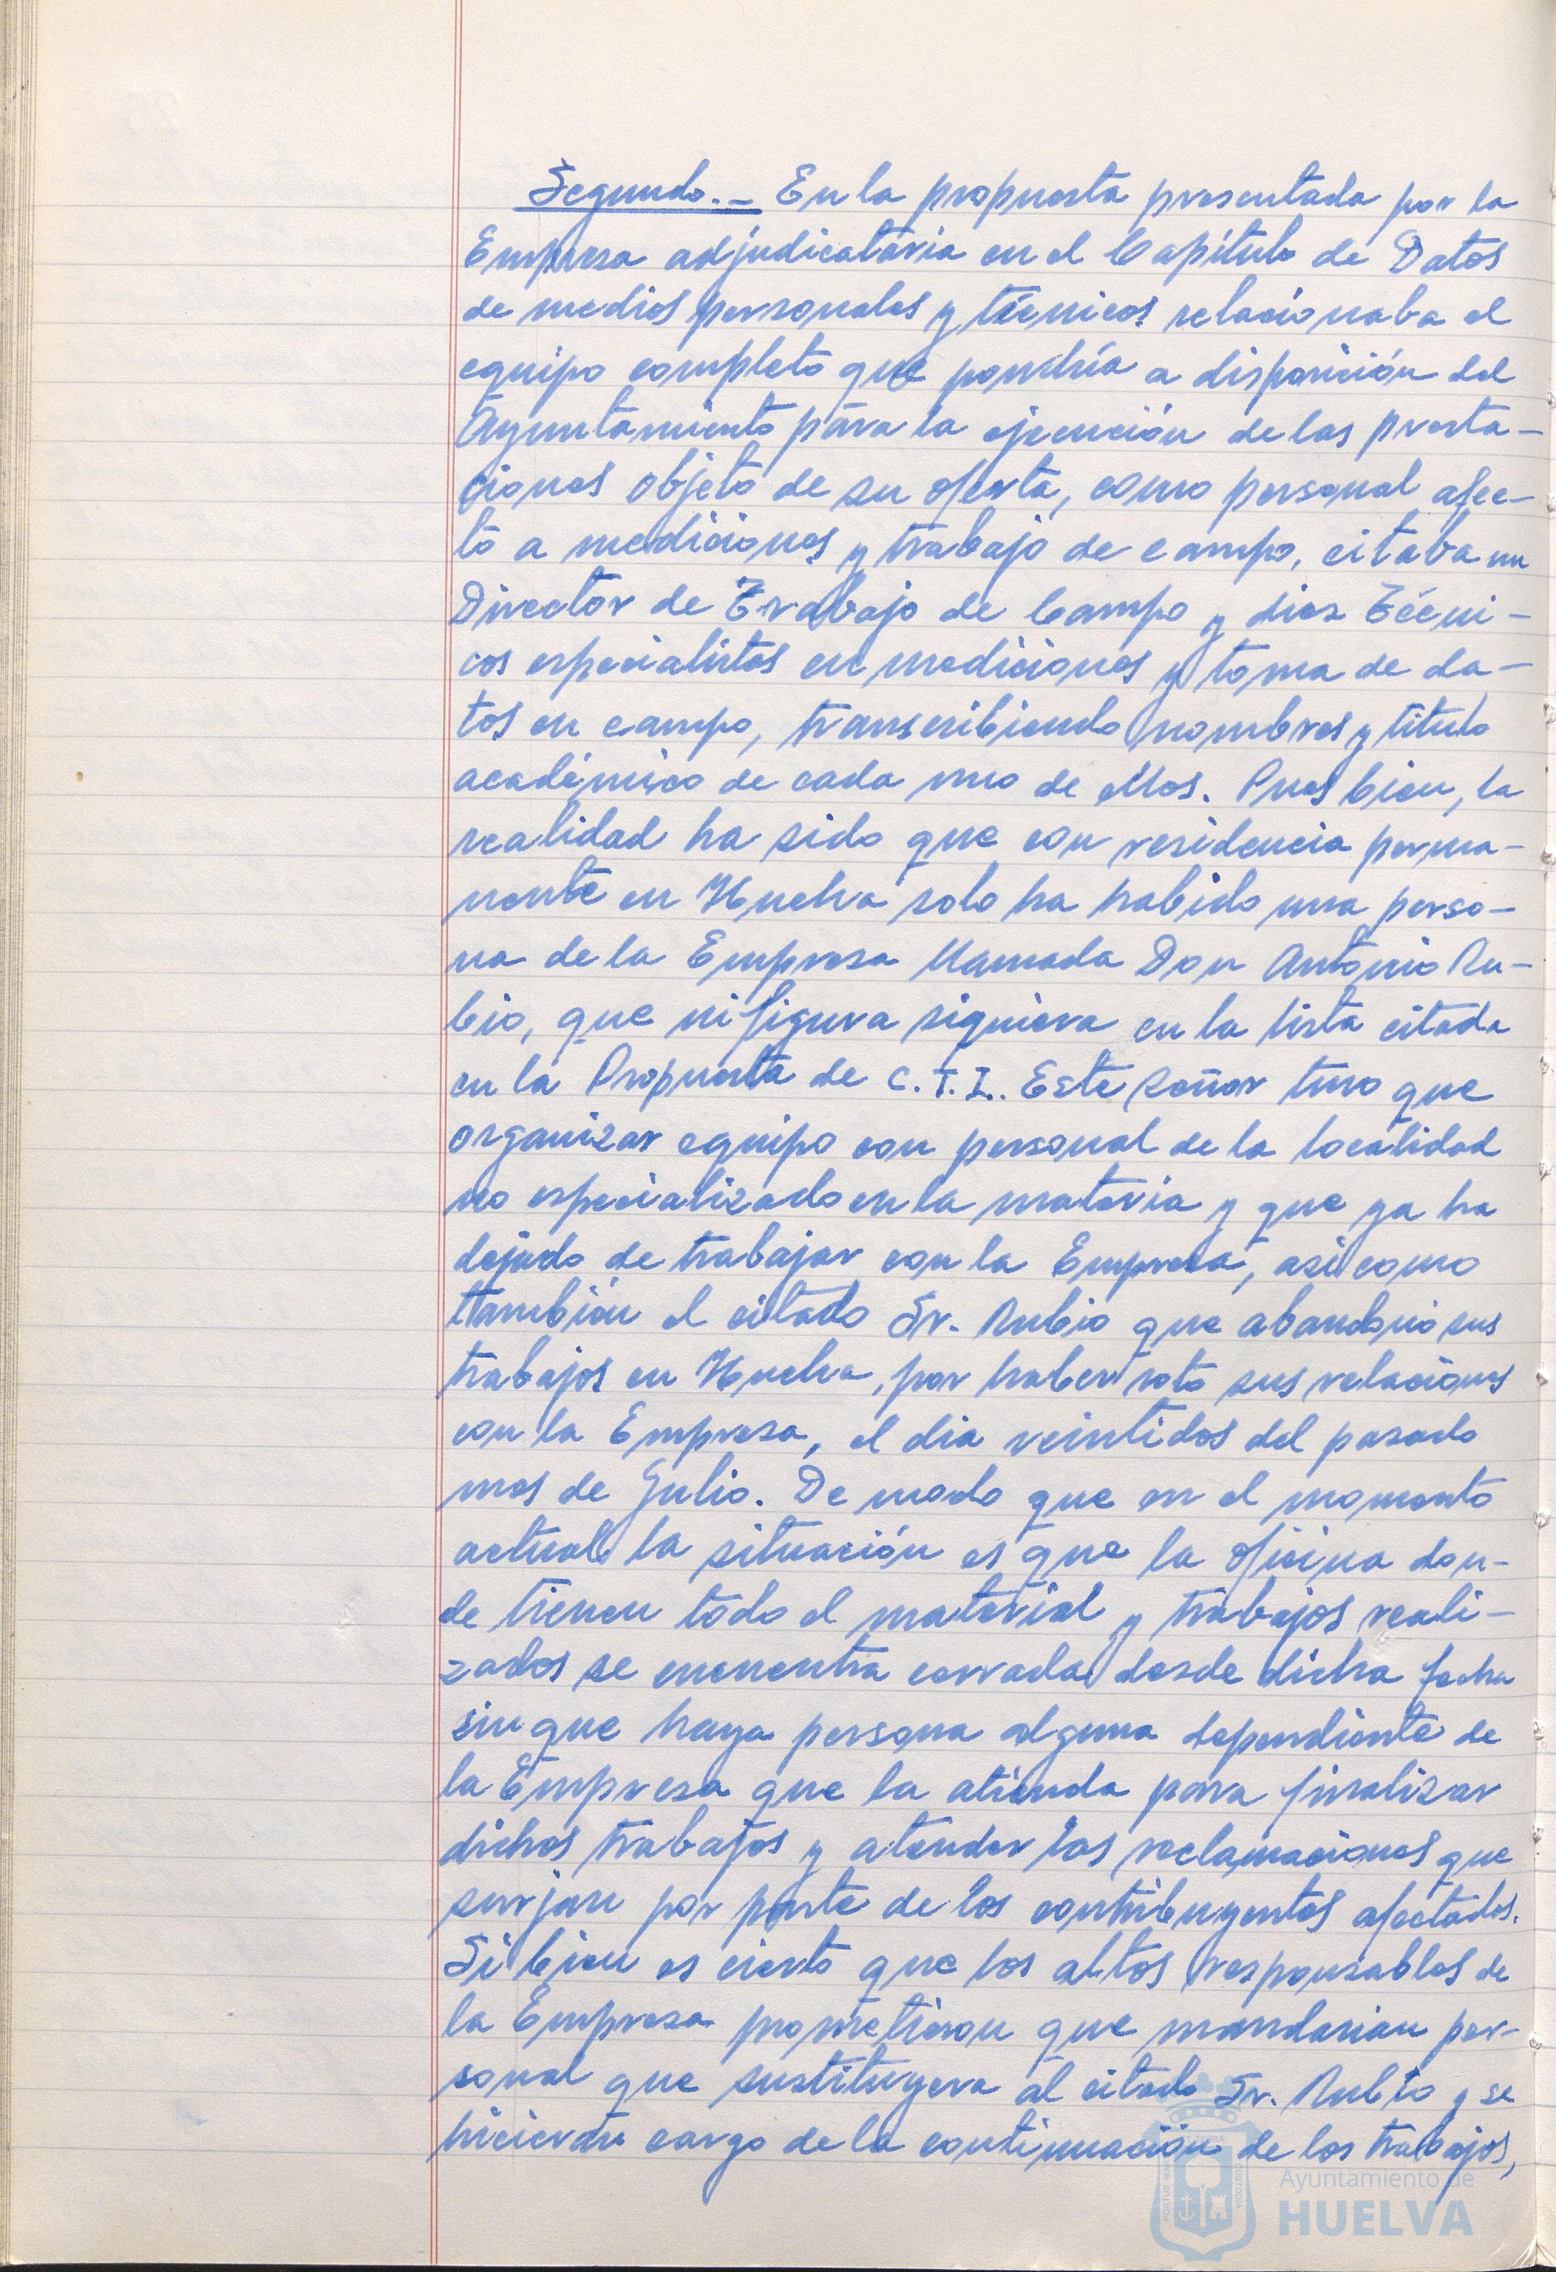 Segundo.- En la propuesta presentada por la
Empresa adjudicataria en el Capítulo de Datos
de medios personales y técnicos relacionaba el
equipo completo que pondría a disposición del
Ayuntamiento para la ejecución de las presta-
ciones objeto de su oferta, como personal afec-
to a mediciones y trabajo de campo, citaba un
Director de Trabajo de Campo y diez Técni-
cos especialistas en mediciones y toma de da-
tos en campo, transcribiendo nombres y título
académico de cada uno de ellos. Pues bien, la
realidad ha sido que con residencia perma-
nente en Huelva solo ha habido una perso-
na de la Empresa llamada Don Antonio Ru-
bio, que ni figura siquiera en la lista citada
en la Propuesta de C.T.I. Este señor tuvo que
organizar equipo con personal de la localidad
no especializado en la materia y que ya ha
dejado de trabajar con la Empresa, asi como
también el citado Sr. Rubio que abandonó sus
trabajos en Huelva, por haber roto sus relaciones
con la Empresa, el dia veintidos del pasado
mes de Julio. De modo que en el momento
actual la situación es que la oficina don-
de tienen todo el material y trabajos reali-
zados se encuentra cerrada desde dicha fecha
sin que haya persona alguna dependiente de
la Empresa que la atienda para finalizar
dichos trabajos y atender las reclamaciones que
surjan por parte de los contribuyentes afectados.
Si bien es cierto que los altos responsables de
la Empresa prometieron que mandarian per-
sonal que sustituyera al citado Sr. Rubio y se
hicieran cargo de la continuación de los trabajos,
Ayuntamiento de
HUELVA